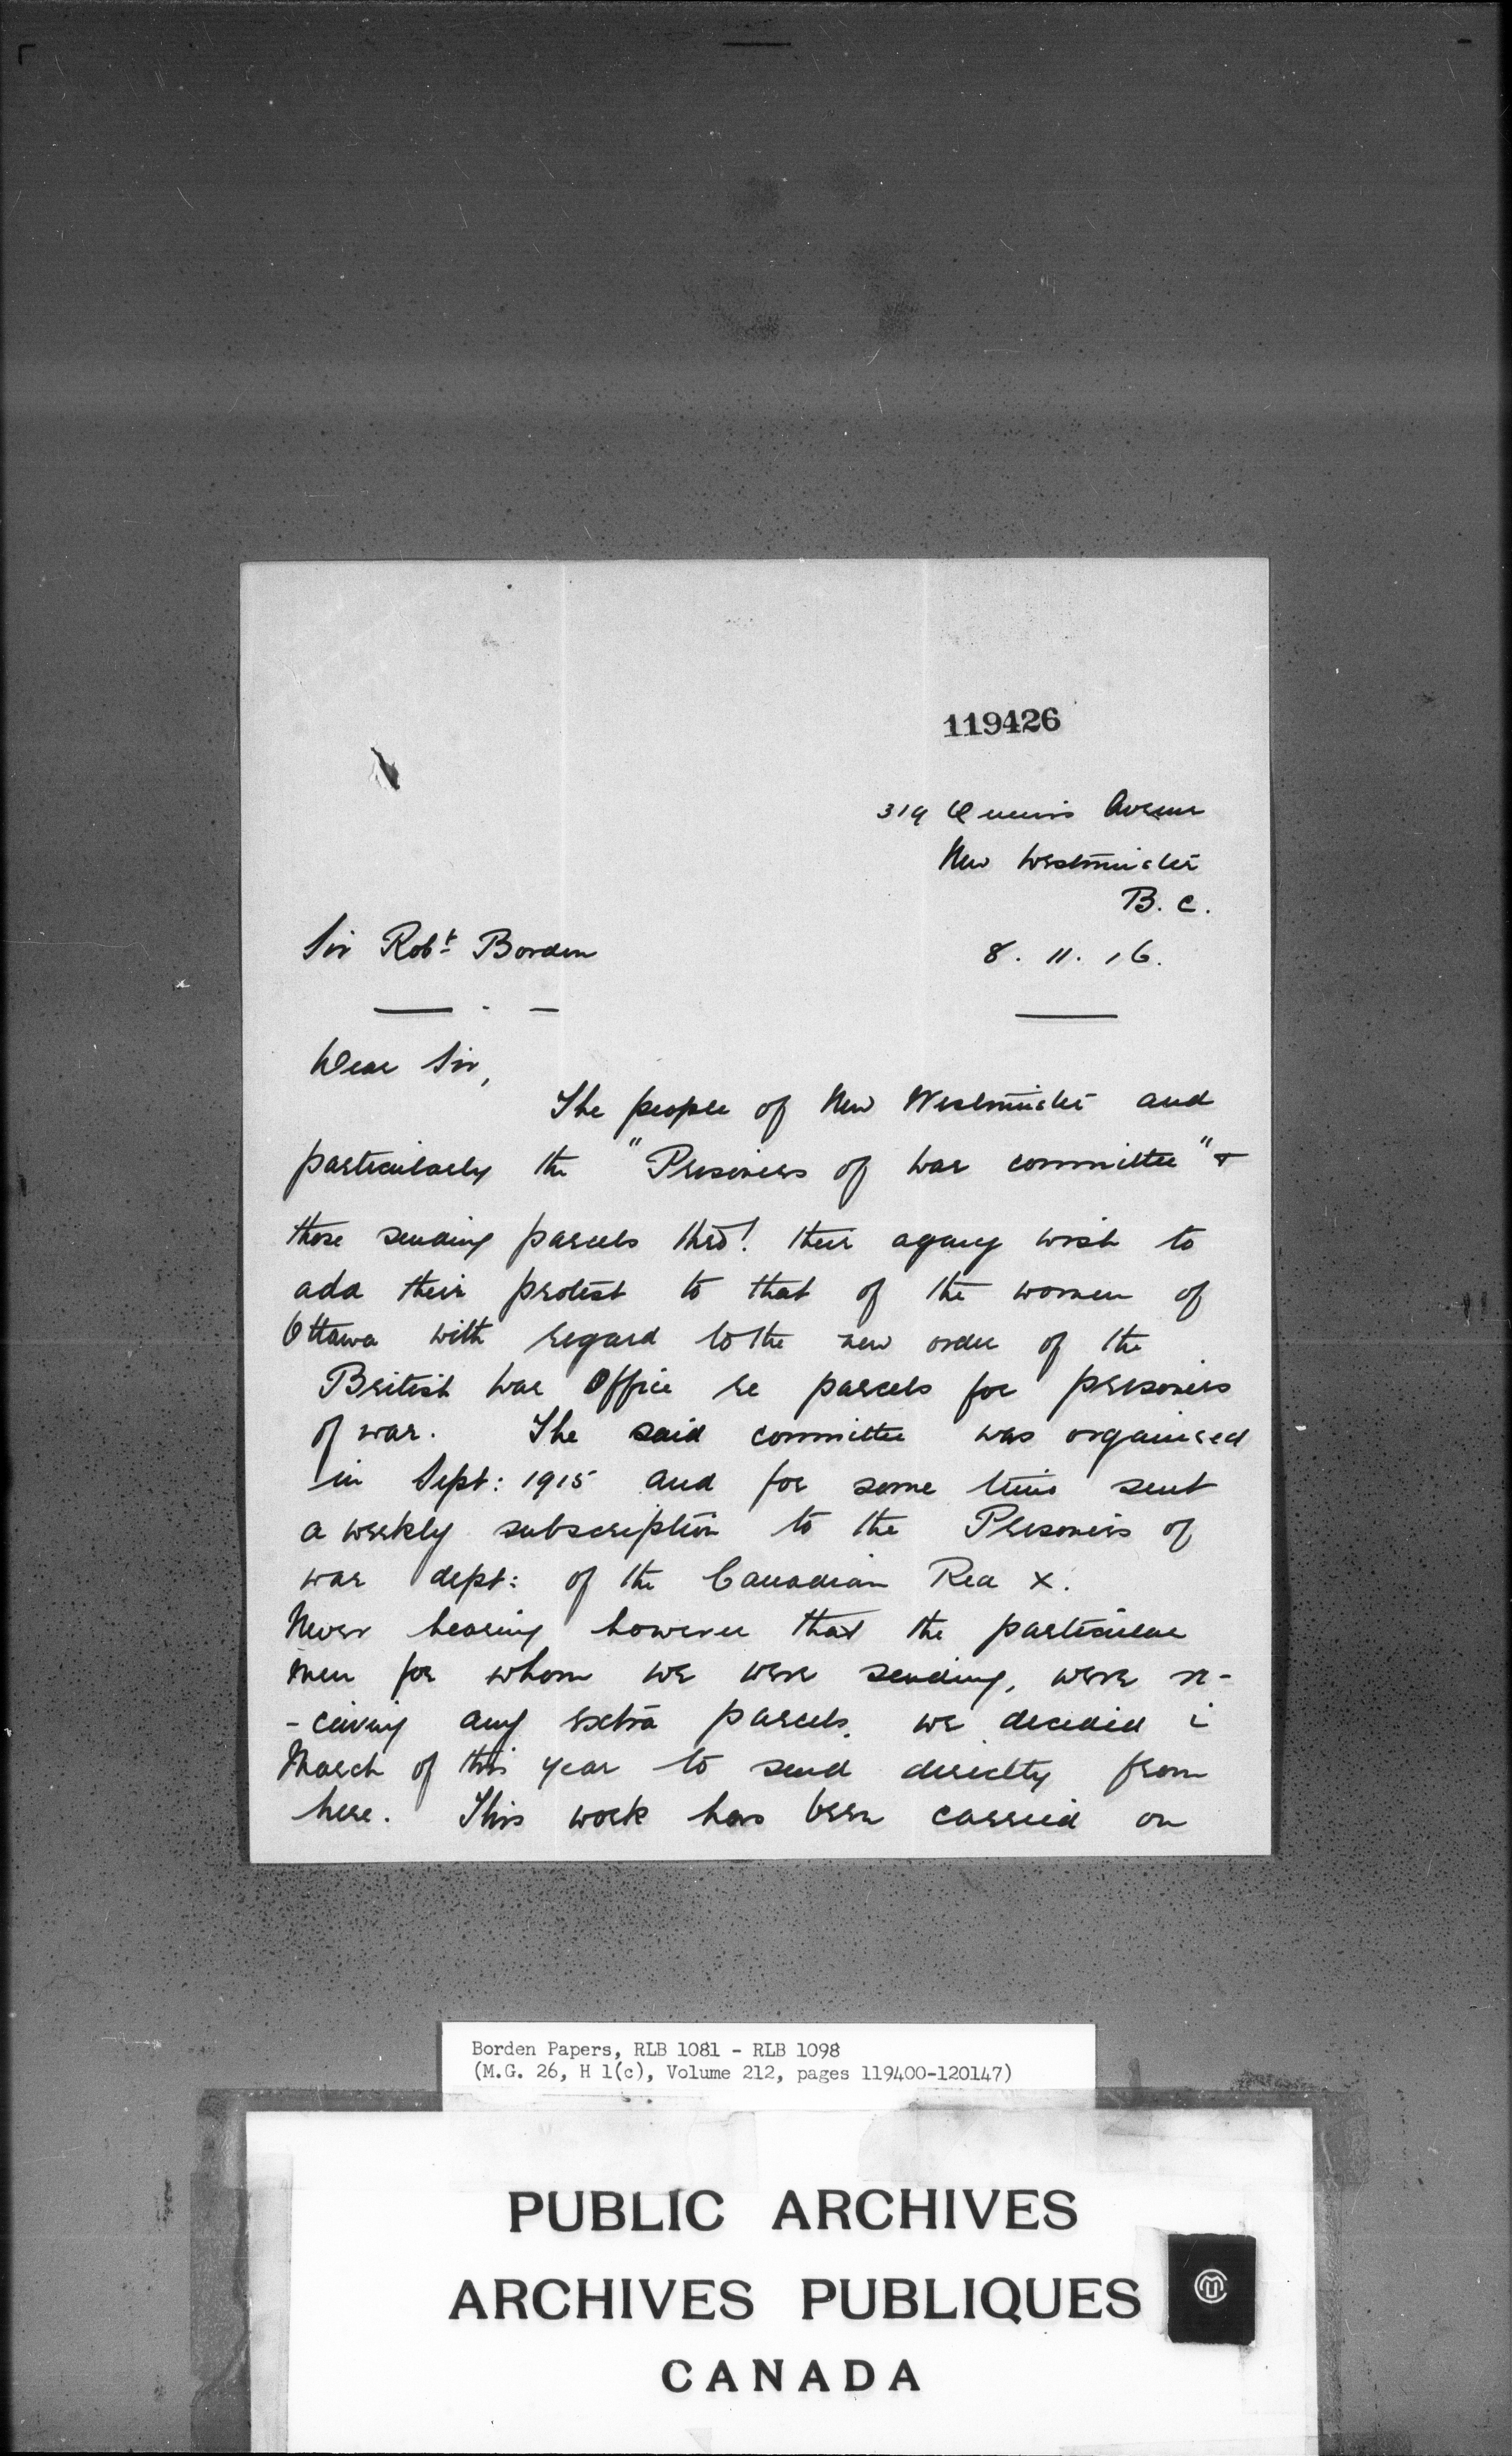 119426
319 Queens Avenue
New Westminster
B. C.
Sir Robt Borden
8. 11. 16.
Dear Sir,
The people of New Westminster and
particularly the "Prisoners of War committee" &
those sending parcels thro! their agency wish to
add their protest to that of the women of
Ottawa with regard to the new order of the
British War Office re parcels for prisoners
of war. The said committee was organised
in Sept: 1915 and for some time sent
a weekly subscription to the Prisoners of
war dept: of the Canadian Red X.
Never hearing however that the particular
men for whom we were sending, were re-
-ceiving any extra parcels, we decided i
March of this year to send directly from
here. This work has been carried on
Borden Papers, RLB 1081 - RLB 1098
(M.G. 26, H 1(c), Volume 212, pages 119400-120147)
PUBLIC ARCHIVES
ARCHIVES PUBLIQUES
CANADA